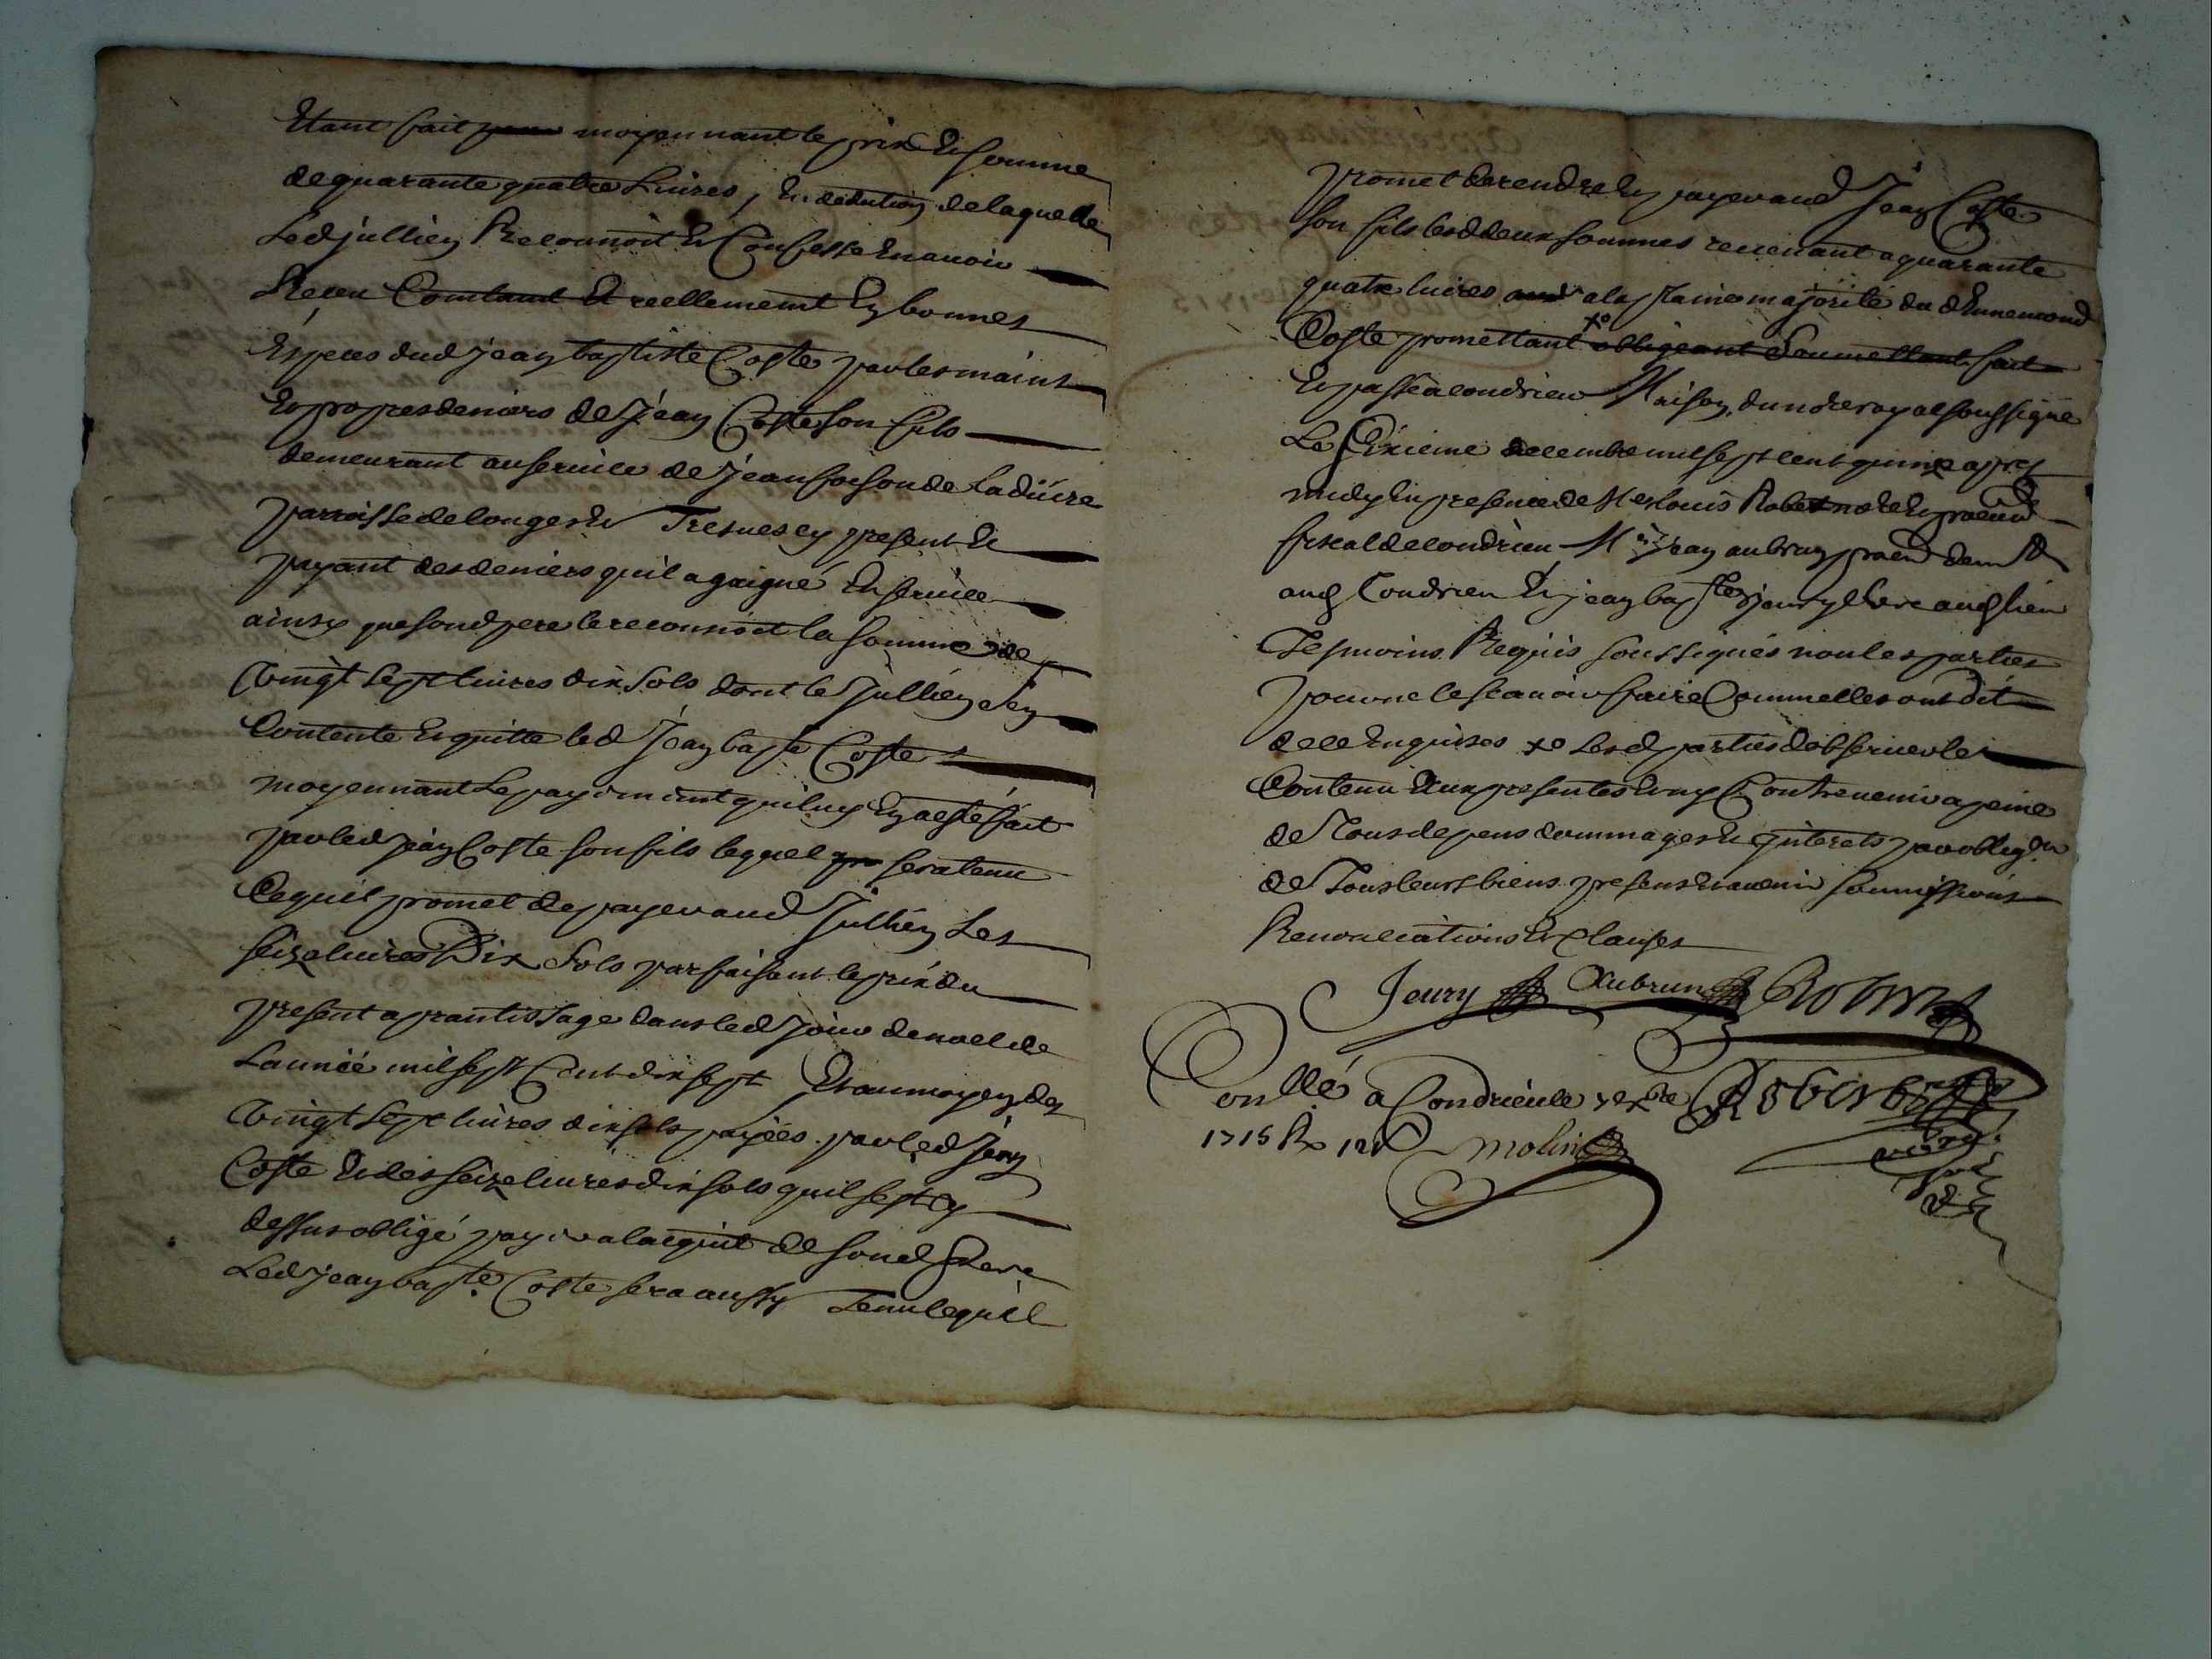 Etant fait pour moyennant le prix et somme
de quarante quatre Livres, En deduction de laquelle
Led jullien Reconnoit et Confesse en avoir
Reçeu Comtant et reellement en bonnes
Espeçes dud jean baptiste Coste par les mains
et propres deniers de Jean Coste son fils
demeurant au service de jean
parroisse de longes et Treves cy present et
payant des deniers quil a gaigné en service
ainsy que sond pere le reconnoit la somme de
vingt sept livres dix sols dont le Jullien sen
Contente et quitte led Jean baptte Coste
moyennant le payement quil luy en a esté fait
par led jean Coste son fils lequel sera tenu
Ce quil promet de payer aud Jullien Les
seize livres Dix sols parfaisant le prix du
present aprantissage dans led jour de noel de
Lannée mil sept Cent dix sept Et au moyen des
vingt sept livres dix sols payées par led jean
Coste et des seize livres dix sols quil sest cy
dessus obligé payer a lacquit de sond Pere
Led jean baptte Coste sera aussy Tenu Ce quil
promet de rendre et payer aud Jean Coste
son fils lesd deux sommes revenant a quarante
quatre livres a la plaine majorité du d Ennemond
Coste promettant xo obligeant Soumettant fait
et passé a condrieu Maison du nore royal soussigné
Le decembre mil sept cent quinze apres
midy en presence de Me Louis Robert nore et procur
fiscal de condrieu Me jean aubrun procur demt
aud Condrieu et jean baptte jeury clerc aud lieu
Tesmoins Requis soussignés non les parties
pour ne le scavoir faire Comme elles ont dit
de ce Enquises xo Lesd parties dobserver le
Contenu aux presentes et ny Contrevenir a peine
de Tous depens dommages et interets par obligon
de Tous leurs biens presens et avenir soumissions
Renonciations et Clauses
Jeury Aubrun Robert
Conllé a Condrieu le xbre Robert
1715 Rx 12s molin